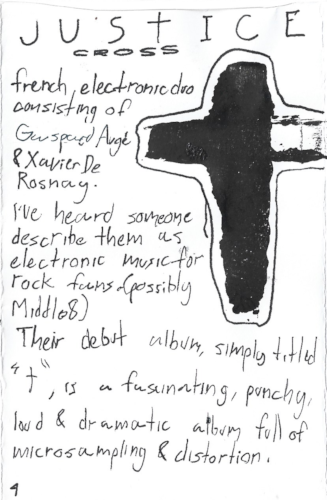 JUSTICE
CROSS
french, electronic duo
consisting of
Gaspard Augé
& Xavier De
Rosnay.
I've heard someone
describe them as
electronic music for
rock fans. (possibly
Middle8)
Their debut album, simply titled
"†", is a fascinating, punchy,
loud & dramatic album full of
microsampling & distortion.
4